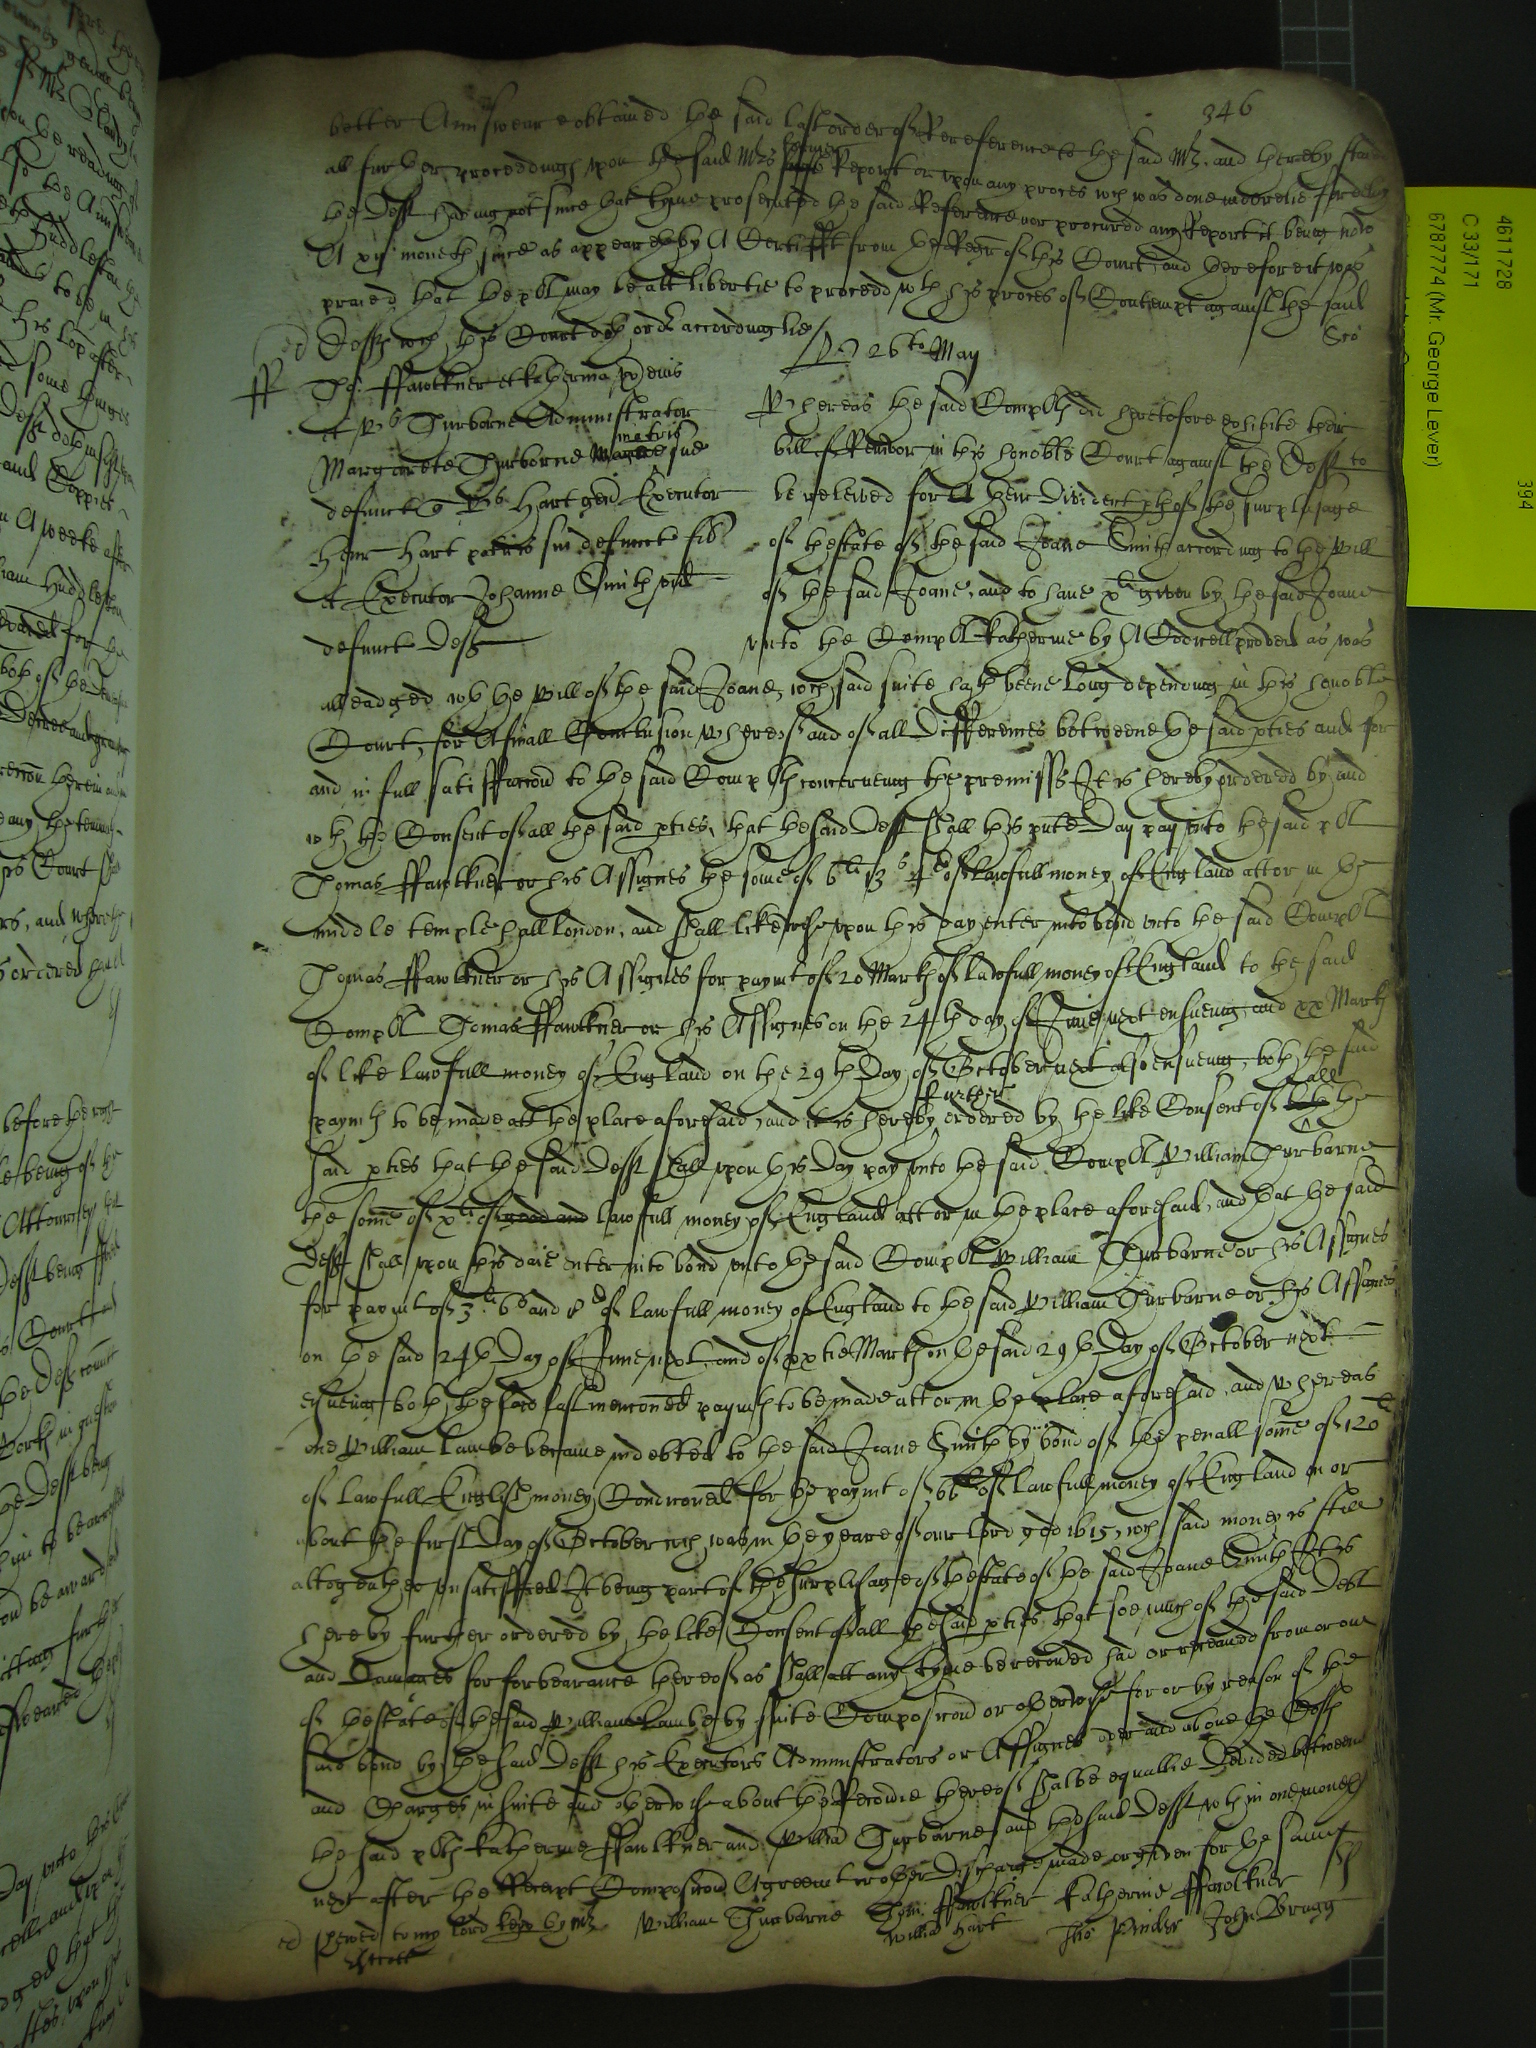 346
better Answeare obtained the said last order of Rereference to the said Mr. and thereby staid
all further proceedings upon the said Mrs former Report or upon any proces wch was done meerelie for delay
the Deft having not since that tyme prosecuted the said Reference nor procured any Report it being now
A xij moneth since as appeareth by A Certifft from the Regr of this Court, and therefore it was
praied that the plt may be att libertie to proceed wth his proces of Contempt against the said
Defts wch this Court doth ordr accordinglie
Sco 26to May
Tho: ffawlkner et katherina ux eius
et Ws Thurbarne Administrator
Margarete Thurborne matris sue
defuncte Ws Hart gen Executor
Henr Hart patris sui defuncti
et Executor Johanne Smith vid
defuncte Deft
Whereas the said Complts did heretofore exhibite their
bill of Revivor in this honoble Court against the Deft to
be releived for A their Divident pts of the surplusage
of thestate of the said Joane Smith according to the Will
of the said Joane, and to have xli given by the said Joane
unto the Complt katherine by A Codicell proved as was
alleadged wth the Will of the said Joane, wch said suite hath beene long depending in this honoble
Court, for A finall Conclusion whereof and of all Differences betweene the said pties and for
and in full satisffaccon to the said Complts concerneing the premisses It is hereby ordered by and
wth the Consent of all the said pties, that the said Deft shall this pnte Day pay unto the said plt
Thomas ffawlkner or his Assignes the some of 6li 13s 4d of lawfull money of England att or in the
middle temple hall London, and shall likewise upon this day enter into bond unto the said Complt
Thomas ffawlkner or his Assignes for paymt of 20 Marks of lawfull money of England to the said
Complt Thomas ffawlkner or his Assignes on the 24th day of June next ensueing, and xx Marks
of like lawfull money of England on the 29th Day of October next also ensueing, both the said
paymts to be made att the place aforesaid, and it is hereby further ordered by the like Consent of all the
said pties that the said Deft shall upon this Day pay unto the said Complt William Thurbarne
the some of xli of good and lawfull money of England att or in the place aforesaid, and that the said
Deft shall upon this daie enter into bond unto the said Complt William Thurbarne or his Assignes
for paymt of 3li 6s and 8d of lawfull money of England to the said William Thurbarne or his Assignes
on the said 24th Day of June next, and of xxtie Marks on the said 29th Day of October next
ensueing both the said last menconed paymts to be made att or in the place aforesaid, and whereas
one William Lambe became indebted to the said Joane Smith by bond of the penall some of 120l
of lawfull English money Condiconed for the paymt of 66li of lawfull money of England on or
about the first Day of October wch was in the yeare of our lord god 1615, wch said money is still
altogeather unsatisffied It being part of the surplusage of thestate of the said Joane Smith It is
hereby further ordered by the like Consent of all the said pties that soe much of the said Debt
and Damages for forbearance thereof as shall att any tyme be recovered had or receaved from or out
of thestate of the said William Lambe by suite Composicon or otherwise for or by reason of the
said bond by the said Deft his Executors Administrators or Assignes over and above the Costs
and Charges in suite and otherwise about the Recoverie thereof shalbe equallie Devided betweene
the said plts katherine ffawlkner and Willia Thurbarne and the said Deft wthin one moneth
next after the Receipt Composicon Agreemt or other Discharge made or given for the same
shewed to my lord kepr by Mr
William Thurbarne Thom: ffawlkner Katherine ffawlkner
Willia Hart Tho Pinder John Brugg
4611728
C 33/171
6787774 (Mr. George Lever)
394